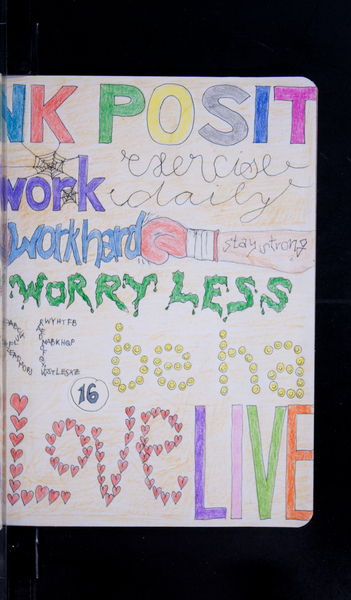 NK POSIT
exercise
work daily
workhard stay strong
WORRY LESS
be ha
16
Love LIVE